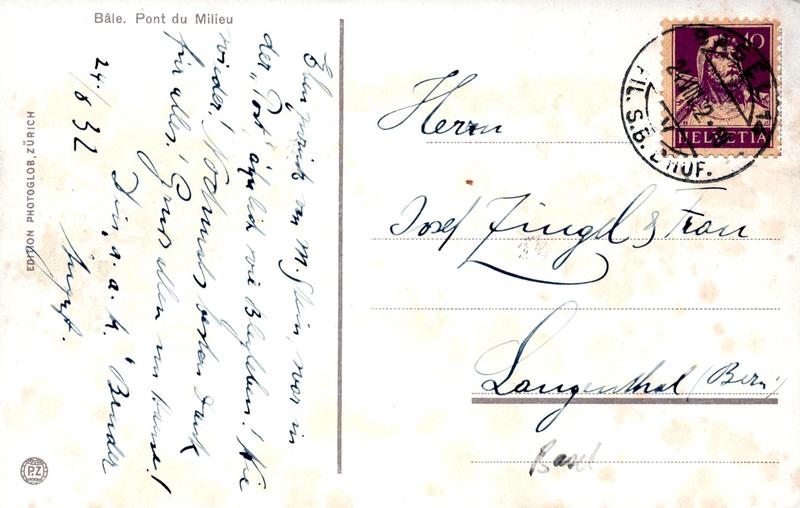 Bâle. Pont du Milieu
24./8 32
Eben zurück von M. Stein, war in
der Post, wie
wieder! Nochmals besten Dank
für alles! Gruss allen von Hause!
Dein a. a. h. Bruder
August.
EDITION PHOTOGLOB, ZÜRICH
PZ
10
HELVETIA
BASEL 17
FIL. S.B.BHOF.
Herrn
Josef Zingel & Frau
Langenthal (Bern)
Basel